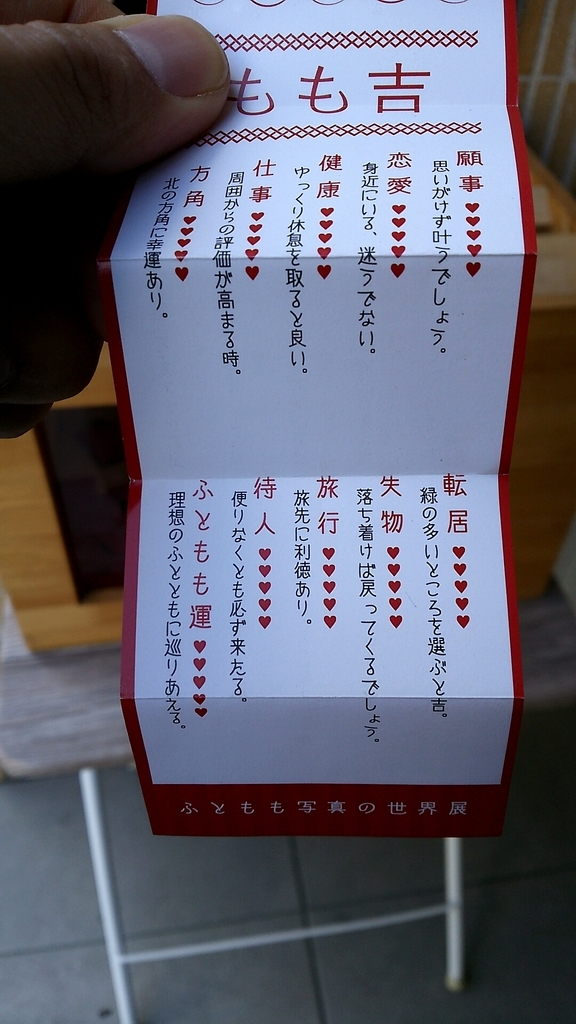 もも吉
願事♥♥♥♥♥
思いがけず叶うでしょう。
恋愛♥♥♥♥♥
身近にいる、迷うでない。
健康♥♥♥♥♥
ゆっくり休息を取ると良い。
仕事♥♥♥♥♥
周囲からの評価が高まる時。
方角♥♥♥♥♥
北の方角に幸運あり。
転居♥♥♥♥♥
緑の多いところを選ぶと吉。
失物♥♥♥♥♥
落ち着けば戻ってくるでしょう。
旅行♥♥♥♥♥
旅先に利徳あり。
待人♥♥♥♥♥
便りなくとも必ず来たる。
ふともも運♥♥♥♥♥
理想のふとともに巡りあえる。
ふともも写真の世界展